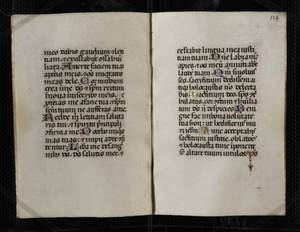 meo dabis gaudium et leti
ciam. et exultabunt ossa hu
iliata. Averte faciem tuam
a peccatis meis. et omnes iniquitates
meas dele. Cor mundum
crea in me deus et spiritum rectum
innova in visceribus meis.
proicias me a facie tua. et spiritum
sanctum tuum ne auferas a me.
Redde michi leticiam saluta
ris tui. et spiritu principali
confirma me. Docebo iniquos
vias tuas. et impii ad te con
vertentur. Libera me de sangui
nibus deus deus salutis mee. et
exaltabit lingua mea iusti
ciam tuam. Domine labia mea
aperies. et os meum annunciabit
laudem tuam. Quoniam si voluis
ses sacrificium dedissem uti
que holocaustis non delecta
beris. Sacrificium deo spiritus contri
bulatus. cor contritum et humilia
tum deus non despicies. Beni
gne fac domine in bona volunta
te tua syon. ut edificentur muri
ierusalem. Tunc acceptabis
sacrificium iusticie. oblationes et
holocausta. tunc imponent
super altare tuum vitulos.